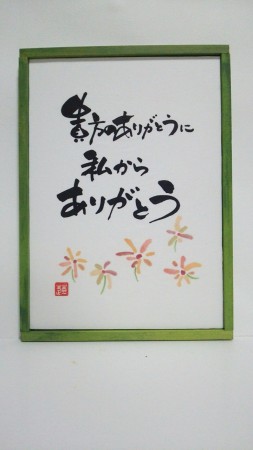 貴方のありがとうに
私から
ありがとう